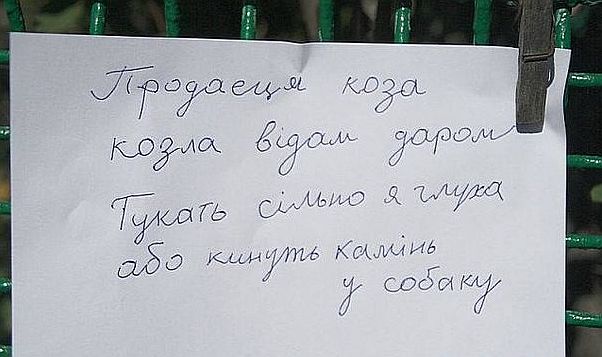 Продаєця коза
козла відам даром
Тукать сільно я глуха
або кинуть камінь
у собаку